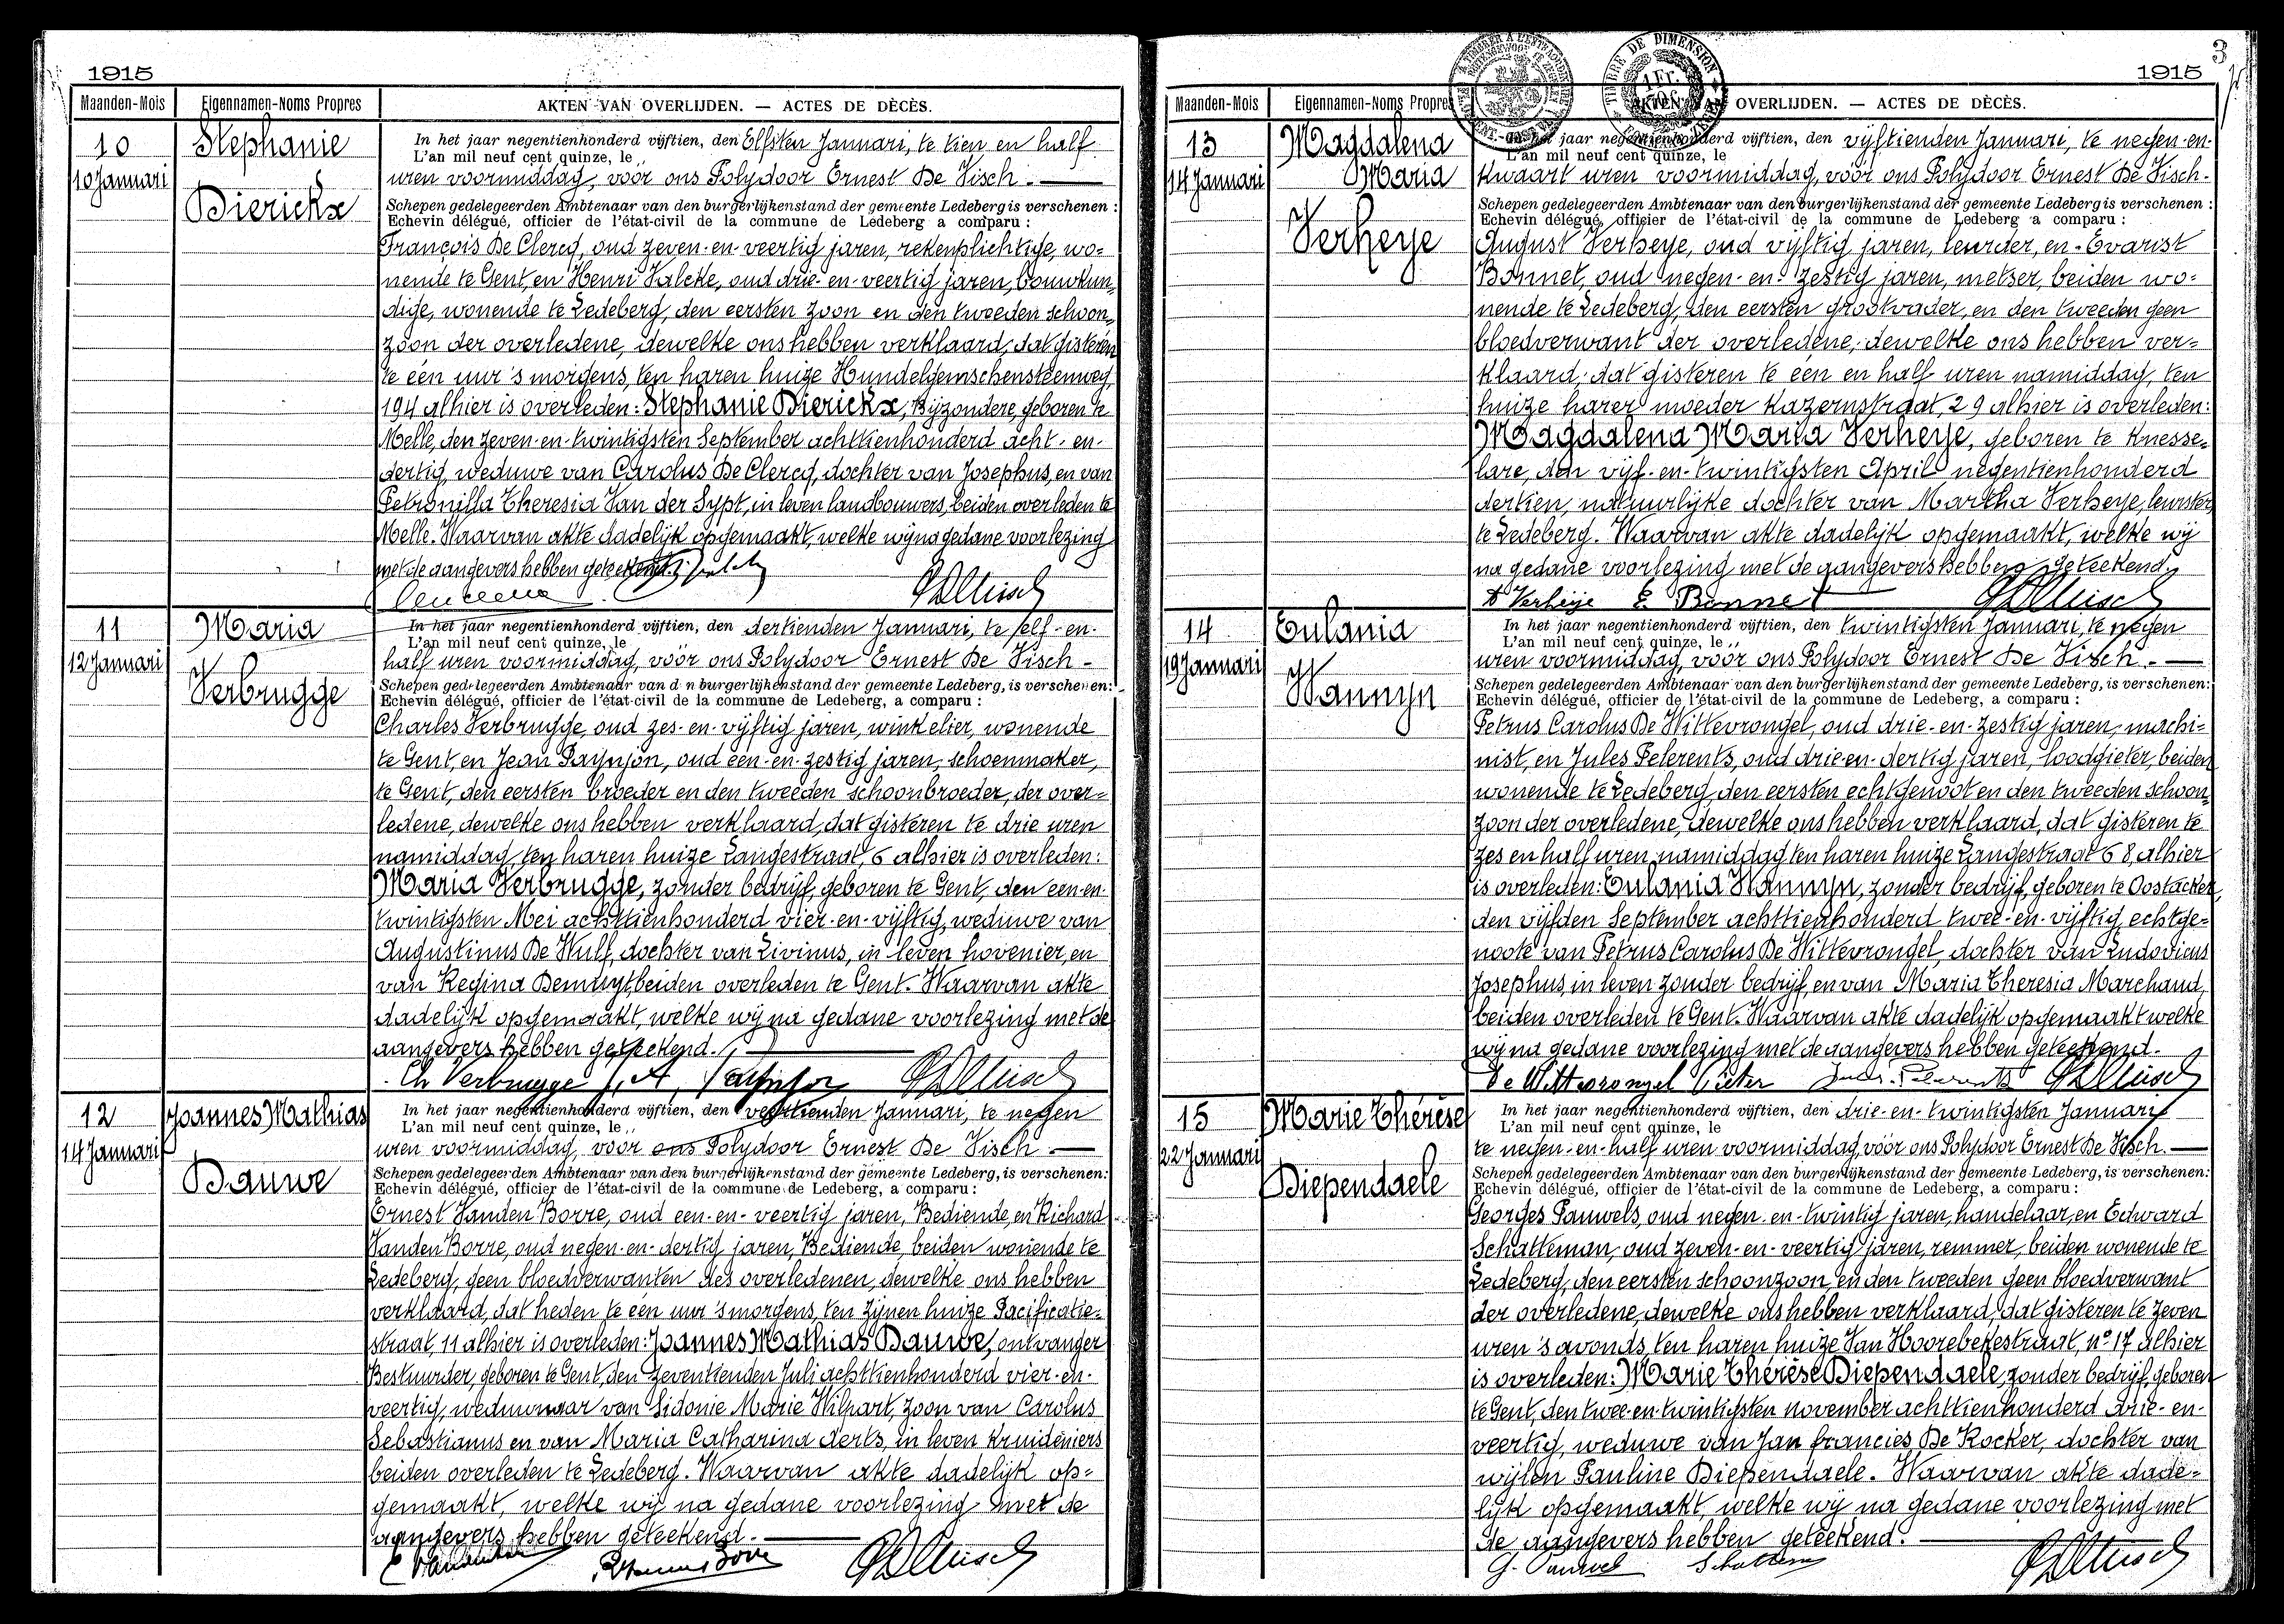 1915
Maanden-Mois Eigennamen-Noms Propres AKTEN VAN OVERLIJDEN. — ACTES DE DÈCÈS.
10
10 Januari
Stephanie
Dierickx
In het jaar negentienhonderd vijftien, den Elfsten Januari, te tien en half
L'an mil neuf cent quinze, le
uren voormiddag, vóór ons Polydoor Ernest De Visch. —
Schepen gedelegeerden Ambtenaar van den burgerlijkenstand der gemeente Ledeberg is verschenen :
Echevin délégué, officier de l'état-civil de la commune de Ledeberg a comparu :
François De Clercq, oud zeven-en-veertig jaren, rekenplichtige, wo=
nende te Gent, en Henri Valcke, oud drie-en-veertig jaren, bouwkun,
dige, wonende te Ledeberg, den eersten zoon en den tweeden schoon,
zoon der overledene, dewelke ons hebben verklaard, dat gisteren
te één uur 's morgens, ten haren huize Hundelgemschensteenweg,
194 alhier is overleden: Stephanie Dierickx, Bijzondere, geboren te
Melle, den zeven-en-twintigsten September achttienhonderd acht-en-
dertig, weduwe van Carolus De Clercq, dochter van Josephus, en van
Petronilla Theresia Van der Sypt, in leven landbouwers, beiden overleden te
Melle. Waarvan akte dadelijk opgemaakt, welke wij na gedane voorlezing
met de aangevers hebben geteekend.
11
12 Januari
Maria
Verbrugge
In het jaar negentienhonderd vijftien, den dertienden Januari, te elf-en-
L'an mil neuf cent quinze, le
half uren voormiddag, vóór ons Polydoor Ernest De Visch -
Schepen gedelegeerden Ambtenaar van den burgerlijkenstand der gemeente Ledeberg, is verschenen:
Echevin délégué, officier de l'état-civil de la commune de Ledeberg, a comparu :
Charles Verbrugge, oud zes-en-vijftig jaren, winkelier, wonende
te Gent, en Jean Paynjon, oud een-en-zestig jaren, schoenmaker,
te Gent, den eersten broeder en den tweeden schoonbroeder, der over=
ledene, dewelke ons hebben verklaard, dat gisteren te drie uren
namiddag, ten haren huize Langestraat, 6 alhier is overleden:
Maria Verbrugge, zonder bedrijf, geboren te Gent, den een-en-
twintigsten Mei achttienhonderd vier-en-vijftig, weduwe van
Augustinus De Wulf, dochter van Livinus, in leven hovenier, en
van Regina Demuyt, beiden overleden te Gent. Waarvan akte
dadelijk opgemaakt, welke wij na gedane voorlezing met de
aangevers hebben geteekend. —
Ch Verbrugge
12
14 Januari
Joannes Mathias
Dauwe
In het jaar negentienhonderd vijftien, den veertienden Januari, te negen
L'an mil neuf cent quinze, le
uren voormiddag, voor ons Polydoor Ernest De Visch. —
Schepen gedelegeerden Ambtenaar van den burgerlijkenstand der gemeente Ledeberg, is verschenen:
Echevin délégué, officier de l'état-civil de la commune de Ledeberg, a comparu :
Ernest Vanden Borre, oud een-en-veertig jaren, Bediende, en Richard
Vanden Borre, oud negen-en-dertig jaren, Bediende, beiden wonende te
Ledeberg, geen bloedverwanten des overledenen, dewelke ons hebben
verklaard, dat heden te één uur 's morgens, ten zijnen huize Pacificatie=
straat, 11 alhier is overleden: Joannes Mathias Dauwe, ontvanger
Bestuurder, geboren te Gent, den zeventienden Juli achttienhonderd vier-en-
veertig, weduwnaar van Sidonie Marie Wilpart, zoon van Carolus
Sebastianus en van Maria Catharina Aerts, in leven kruideniers
beiden overleden te Ledeberg. Waarvan akte dadelijk op=
gemaakt, welke wij na gedane voorlezing met de
aangevers hebben geteekend. —
3
1915
Maanden-Mois Eigennamen-Noms Propres AKTEN VAN OVERLIJDEN. — ACTES DE DÈCÈS.
TIMBRE DE DIMENSION
1 Fr.
13
14 Januari
Magdalena
Maria
Verheye
In het jaar negentienhonderd vijftien, den vijftienden Januari, te negen-en-
L'an mil neuf cent quinze, le
kwaart uren voormiddag, vóór ons Polydoor Ernest De Visch.
Schepen gedelegeerden Ambtenaar van den burgerlijkenstand der gemeente Ledeberg is verschenen :
Echevin délégué, officier de l'état-civil de la commune de Ledeberg a comparu :
August Verheye, oud vijftig jaren, leurder, en Evarist
Bonnet, oud negen-en-zestig jaren, metser, beiden wo=
nende te Ledeberg, den eersten grootvader, en den tweeden geen
bloedverwant der overledene, dewelke ons hebben ver=
klaard, dat gisteren te een en half uren namiddag, ten
huize harer moeder Kazernstraat, 29 alhier is overleden:
Magdalena Maria Verheye, geboren te Knesse=
lare, den vijf-en-twintigsten April negentienhonderd
dertien, natuurlijke dochter van Martha Verheye, leurster,
te Ledeberg. Waarvan akte dadelijk opgemaakt, welke wij
na gedane voorlezing met de aangevers hebben geteekend.
A Verheye E. Bonnet
14
19 Januari
Eulania
Wannyn
In het jaar negentienhonderd vijftien, den twintigsten Januari, te negen
L'an mil neuf cent quinze, le
uren voormiddag, vóór ons Polydoor Ernest De Visch. —
Schepen gedelegeerden Ambtenaar van den burgerlijkenstand der gemeente Ledeberg, is verschenen:
Echevin délégué, officier de l'état-civil de la commune de Ledeberg, a comparu :
Petrus Carolus De Wittevrongel, oud drie-en-zestig jaren, machi=
nist, en Jules Pelerents, oud drie-en-dertig jaren, loodgieter, beiden
wonende te Ledeberg, den eersten echtgenoot en den tweeden schoon,
zoon der overledene, dewelke ons hebben verklaard, dat gisteren te
zes en half uren namiddag ten haren huize Langestraat 68, alhier
is overleden: Eulania Wannyn, zonder bedrijf, geboren te Oostacker,
den vijfden September achttienhonderd twee-en-vijftig, echtge=
noote van Petrus Carolus De Wittevrongel, dochter van Ludovicus
Josephus, in leven zonder bedrijf, en van Maria Theresia Marchand,
beiden overleden te Gent. Waarvan akte dadelijk opgemaakt welke
wij na gedane voorlezing met de aangevers hebben geteekend.
De Wittevrongel Pieter
15
22 Januari
Marie Thérèse
Diependaele
In het jaar negentienhonderd vijftien, den drie-en-twintigsten Januari
L'an mil neuf cent quinze, le
te negen-en-half uren voormiddag, vóór ons Polydoor Ernest De Visch. —
Schepen gedelegeerden Ambtenaar van den burgerlijkenstand der gemeente Ledeberg, is verschenen:
Echevin délégué, officier de l'état-civil de la commune de Ledeberg, a comparu :
Georges Pauwels, oud negen-en-twintig jaren, handelaar, en Edward
Schatteman, oud zeven-en-veertig jaren, remmer, beiden wonende te
Ledeberg, den eersten schoonzoon, en den tweeden geen bloedverwant
der overledene, dewelke ons hebben verklaard, dat gisteren te zeven
uren 's avonds, ten haren huize Van Hoorebekestraat, n° 17 alhier
is overleden: Marie Thérèse Diependaele, zonder bedrijf, geboren
te Gent, den twee-en-twintigsten november achttienhonderd drie-en-
veertig, weduwe van Jan francies De Kocker, dochter van
wijlen Pauline Diependaele. Waarvan akte dade=
lijk opgemaakt, welke wij na gedane voorlezing met
de aangevers hebben geteekend. —